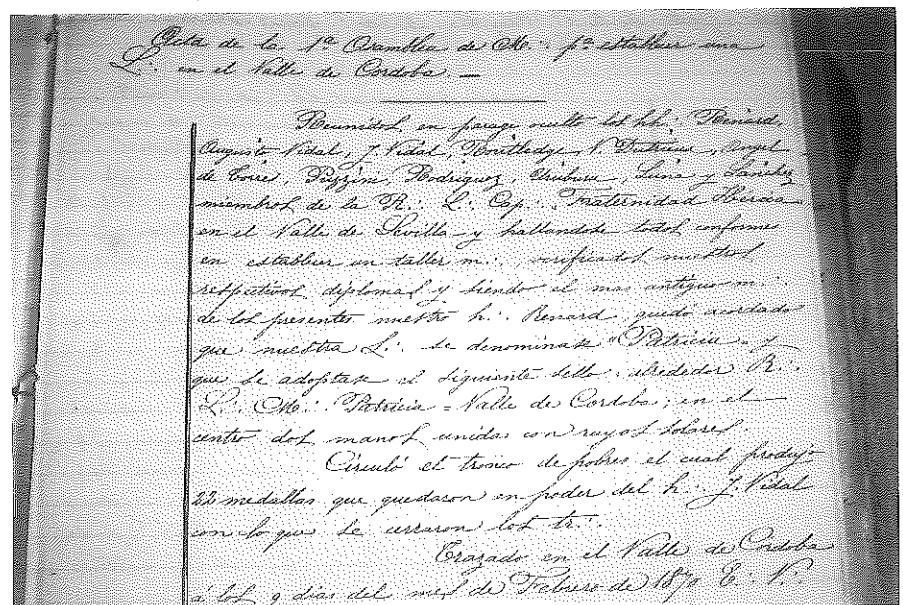 Acta de la 1ª Asamblea de M∴ pª establecer una
L∴ en el Valle de Cordoba —
Reunidos en parage oculto los hh∴ Renard,
Augusto Vidal, J Vidal, Routledge, V. Patricio, Angel
de Torres, Puzzini, Rodriguez, Uruburu, Luna y Sanchez
miembros de la R∴ L∴ Cap∴ Fraternidad Iberica
en el Valle de Sevilla y hallandose todos conformes
en establecer un taller m∴, verificados nuestros
respectivos diplomas y siendo el mas antiguo m.
de los presentes nuestro h∴ Renard, quedó acordado
que nuestra L∴ se denominase "Patricia" y
que se adoptase el siguiente sello: alrededor R∴
L∴ M∴ Patricia = Valle de Cordoba; en el
centro dos manos unidas con rayos solares.
Circuló el tronco de pobres el cual produjo
22 medallas que quedaron en poder del h∴ J Vidal
con lo que se cerraron los tr∴
Trazado en el Valle de Cordoba
a los 9 dias del mes de Febrero de 1870 E∴ V∴